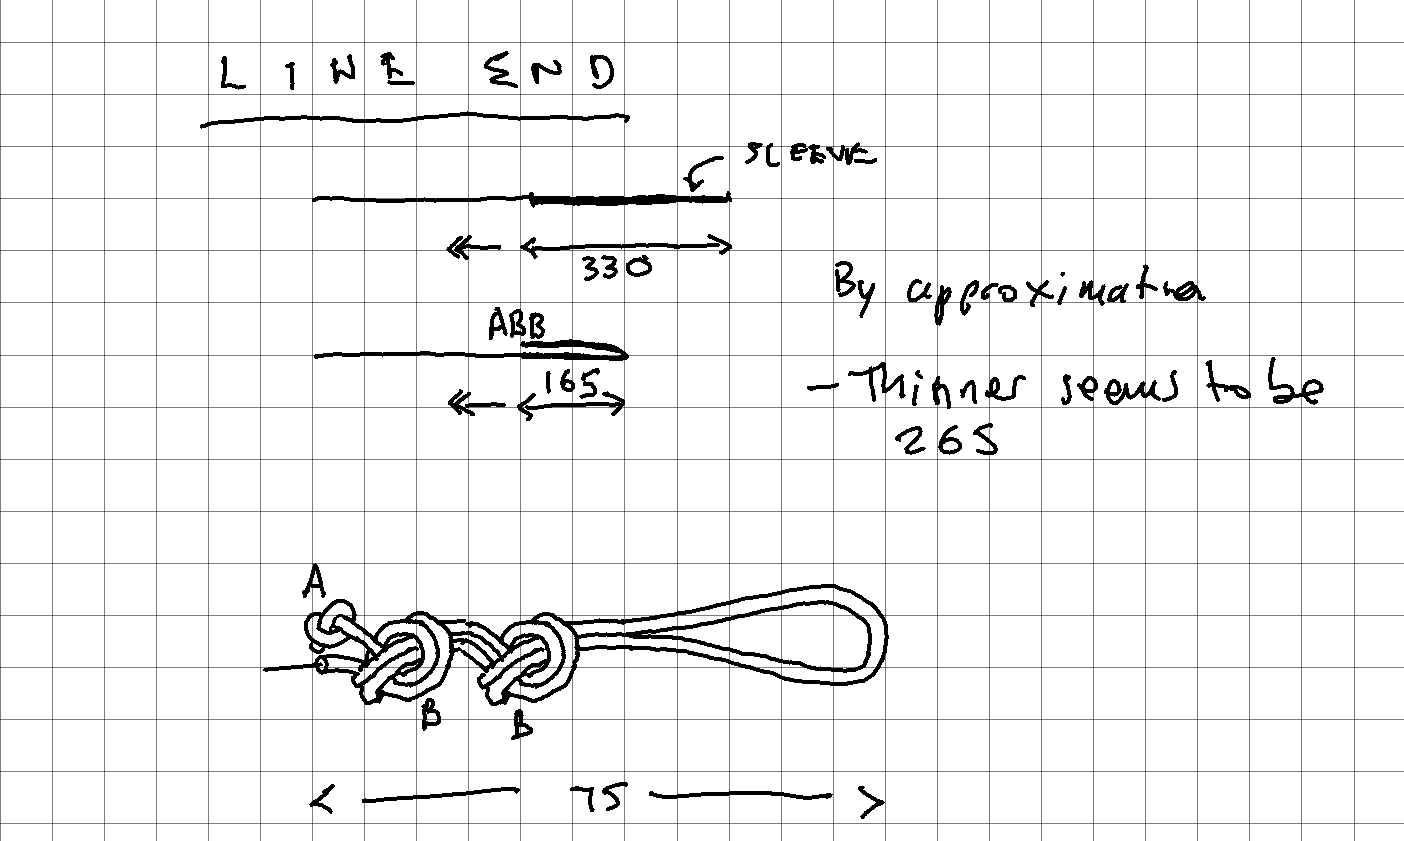 LINE END
SLEEVE
330
By approximation
ABB
165
- Thinner seems to be
265
A
B
B
75